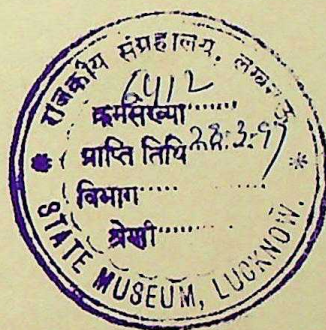 राजकीय संग्रहालय, लखनऊ
क्रमसंख्या 6412
प्राप्ति तिथि 28.3.97
विभाग
श्रेणी
STATE MUSEUM, LUCKNOW.